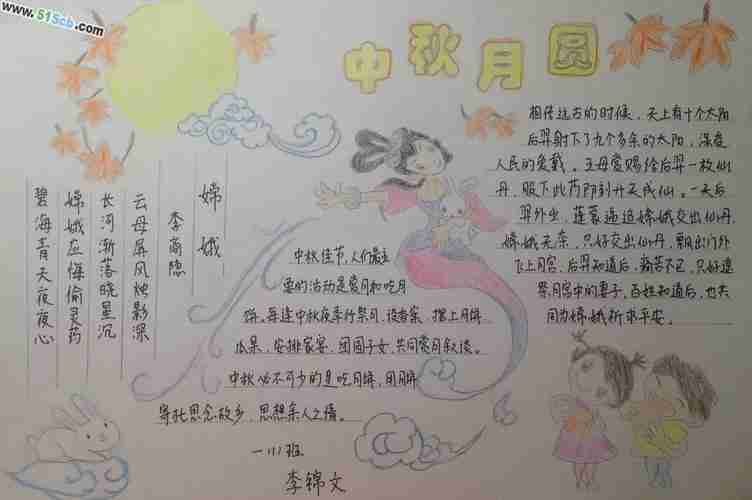 www.515cb.com
中秋月圆
嫦娥
李商隐
云母屏风烛影深
长河渐落晓星沉
嫦娥应悔偷灵药
碧海青天夜夜心
相传远古的时候，天上有十个太阳
后羿射下了九个多余的太阳，深受
人民的爱戴。王母娘赐给后羿一枚仙
丹，服下此药即刻升天成仙。一天后
羿外出，蓬蒙逼迫嫦娥交出仙丹，
嫦娥无奈，只好交出仙丹，出门外
飞上月宫，后羿知道后，痛苦不已，只好遥
祭月宫中的妻子，百姓知道后，也共
同为嫦娥祈求平安。
中秋佳节，人们最主
要的活动是赏月和吃月
饼。每逢中秋夜举行祭月，设香案，摆上月饼
瓜果，安排家宴，团圆子女，共同赏月叙谈。
中秋必不可少的是吃月饼，用月饼
寄托思念故乡，思想亲人之情。
一(11)班
李锦文